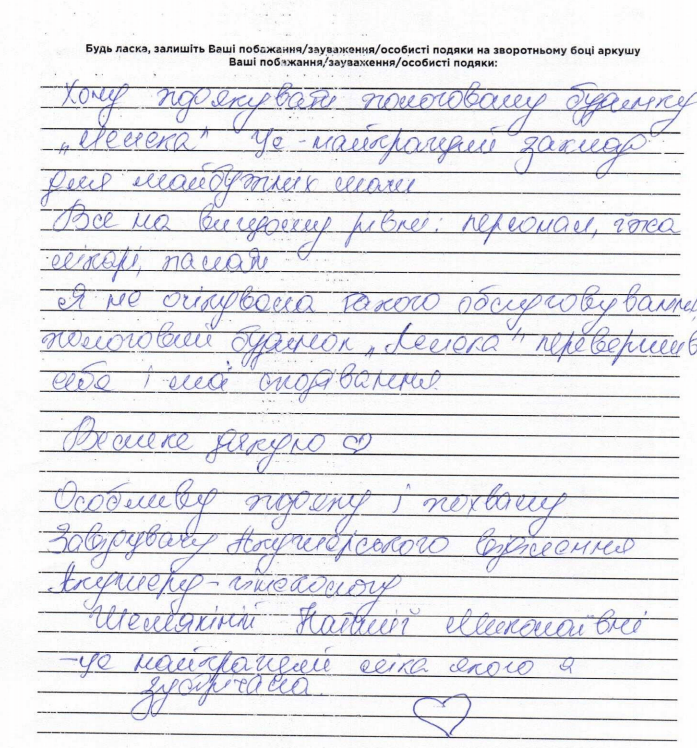 Будь ласка, залишіть Ваші побажання/зауваження/особисті подяки на зворотньому боці аркушу
Ваші побажання/зауваження/особисті подяки:
Хочу подякувати пологовому будинку
„Лелека" Це - найкращий заклад
для майбутніх мами
Все на вищому рівні: персонал, їжа
лікарі, палати
Я не очікувала такого обслуговування,
пологовий будинок „Лелека" перевершив
себе і мої сподівання.
Велике дякую ♡
Особливу подяку і похвалу
Завідувачу Акушерського відділення
Акушеру - гінекологу
Шемякіній Наталії Миколаївні
- це найкращий ліка якого я
зустрічала.